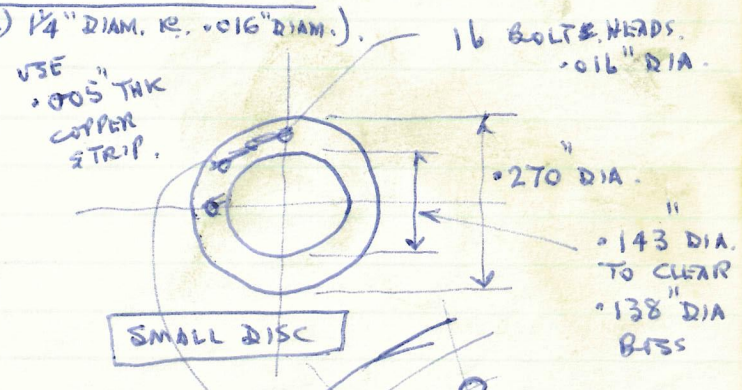 ) 1/4" DIAM. IE. .016" DIAM.).
16 BOLT HEADS.
.016" DIA.
USE
.005" THK
COPPER
STRIP.
.270" DIA.
.143" DIA.
TO CLEAR
.138" DIA
BOSS
SMALL DISC